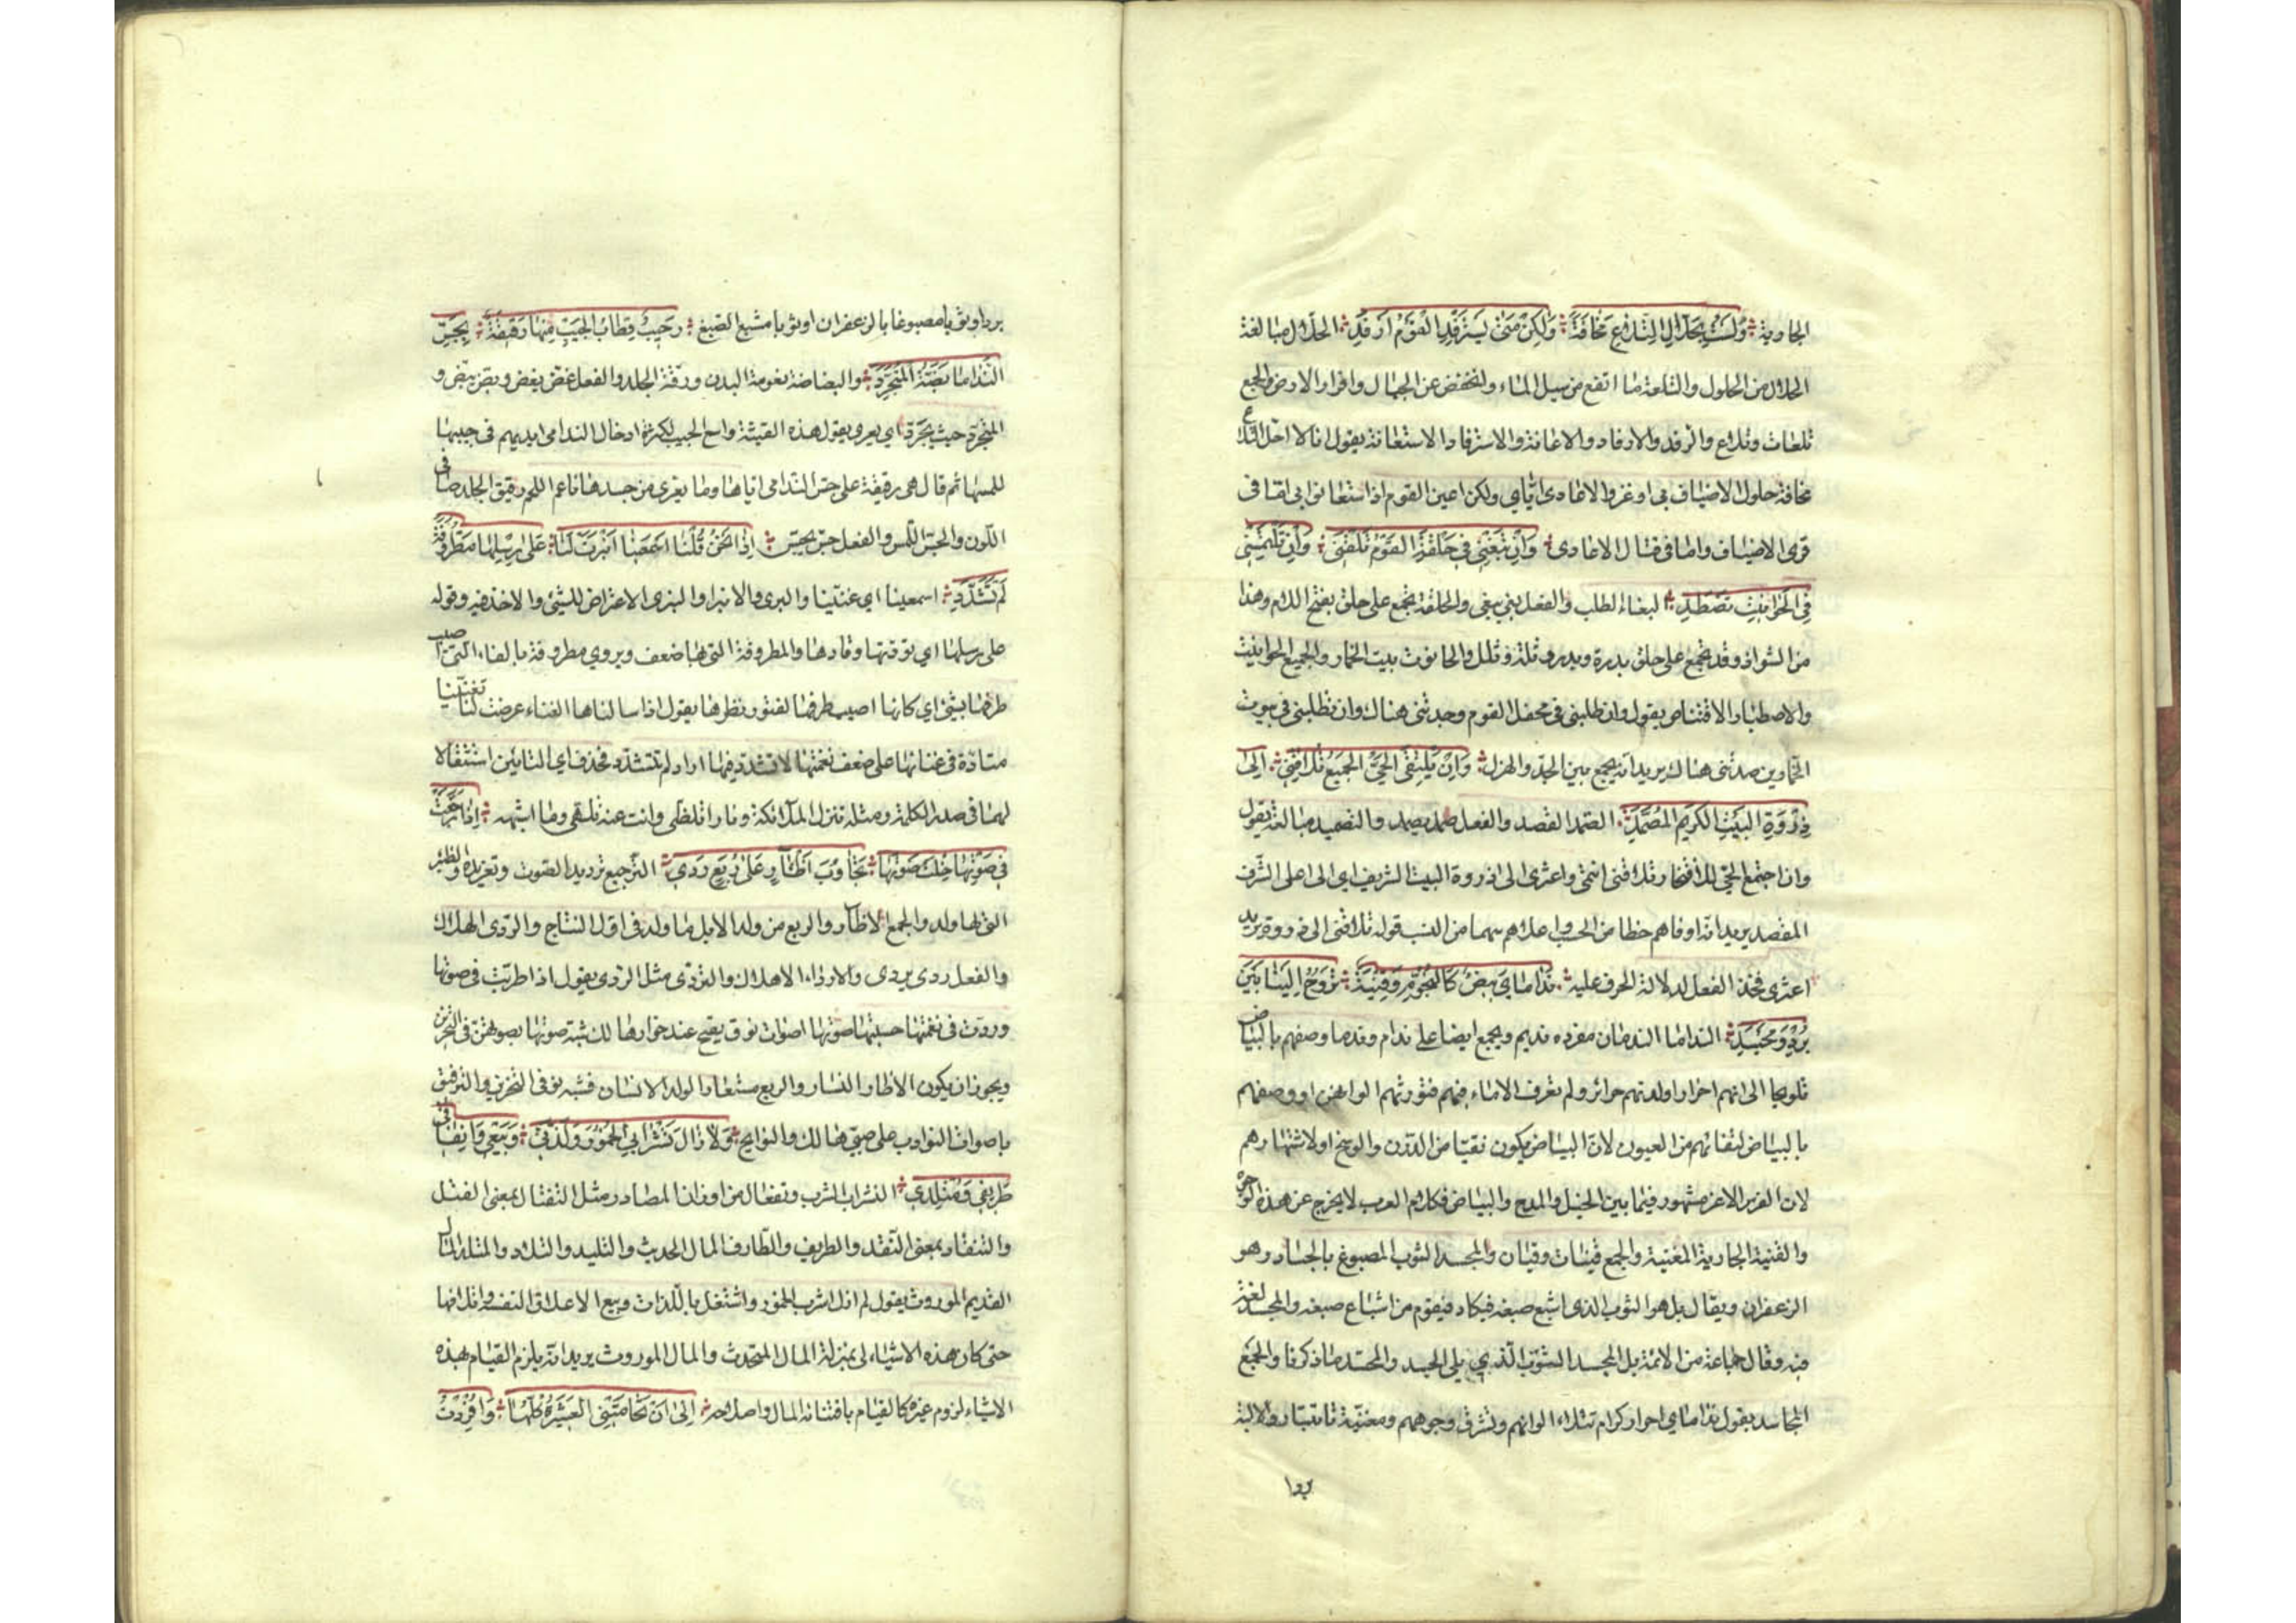 الجاوية ؞ وَلَسْتُ بِحَلَّالِ التِّلَاعِ مَخَافَةً ؞ وَلَكِنْ مَتَى يَسْتَرْفِدِ الْقَوْمُ أَرْفِدِ ؞ الحلال مبالغة
الحلال من الحلول والتلعة ما ارتفع من سيل الماء وانخفض عن الجبال وافرار الارض والجمع
تلعات وتلاع والرفد والارفاد والاعانة والاسترفاد الاستعانة يقول انا لا احل التلاع
مخافة حلول الاضياف بي او غزو الاعادى اياي ولكن اعين القوم اذا استعانوا بي اما فى
قرى الاضياف واما فى قتال الاعادى ؞ وَإِنْ تَبْغِنِي فِي حَلْقَةِ الْقَوْمِ تَلْقَنِي ؞ وَإِنْ تَلْتَمِسْنِي
فِي الْحَوَانِيتِ تَصْطَدِ ؞ البغاء الطلب والفعل بغى يبغى والحلقة يجمع على حلق بفتح اللام وهذا
من الشواذ وقد يجمع على حلق بدرة وبدر وثلة وثلل والحانوت بيت الخمار والجمع الحوانيت
والاصطياد الاقتناص يقول وان طلبنى فى محفل القوم وجدتنى هناك وان تطلبنى فى بيوت
الخمارين صدتنى هناك يريد انه يجمع بين الجد والهزل ؞ وَإِنْ يَلْتَقِ الْحَيُّ الْجَمِيعُ تُلَاقِنِي ؞ إِلَى
ذِرْوَةِ الْبَيْتِ الْكَرِيمِ الْمُصَمَّدِ ؞ الصمد القصد والفعل صمد يصمد والتصميد مبالغة يقول
وان اجتمع الحي للافتخار تلاقنى انتمى واعتزى الى ذروة البيت الشريف اي الى اعلى الشرف
المقصد يريد انه اوفاهم حظا من الحسب واعلاهم سهما من النسب قوله تلاقنى الى ذروة يريد
اعتزى فحذف الفعل لدلالة الحرف عليه ؞ نَدَامَايَ بِيضٌ كَالنُّجُومِ وَقَيْنَةٌ ؞ تَرُوحُ إِلَيْنَا بَيْنَ
بُرْدٍ وَمُجْسَدِ ؞ النداما الندمان مفرده نديم ويجمع ايضا على ندام وندما وصفهم بالبياض
تلويحا الى انهم احرار اولدتهم حرائر ولم تعرف الاماء فيهم فتورثهم الوانهن او وصفهم
بالبياض لنقائهم من العيوب لان البياض يكون نقيا من الدرن والوسخ او لاشتهارهم
لان الفرس الاغر مشهور فيما بين الخيل والمدح والبياض فى كلام العرب لا يخرج عن هذه الوجوه
والقينة الجارية المغنية والجمع قينات وقيان والمجسد الثوب المصبوغ بالجساد وهو
الزعفران ويقال بل هو الثوب الذى اشبع صبغه فيكاد فيقوم من اشباع صبغه والمجسد لغة
فيه وقال جماعة من الائمة بل المجسد الثوب الذي يلى الجسد والمجسد ما ذكرنا والجمع
المجاسد يقول نداماي احرار كرام تتلالا الوانهم وتشرق وجوههم ومغنية تاتينا رواحا لابسة
بردا
بردا او ثوبا مصبوغا بالزعفران او ثوبا مشبع الصبغ ؞ رَحِيبٌ قِطَابُ الْجَيْبِ مِنْهَا رَقِيقَةٌ ؞ بِجَسِّ
النَّدَامَا بَضَّةُ الْمُتَجَرَّدِ ؞ والبضاضة نعومة البدن ورقة الجلد والفعل غض يغض وبض يبض و
المتجرد حيث تجرد اي يعرى يقول هذه القينة واسع الجيب لكثرة ادخال الندامى ايديهم فى جيبها
للمسها ثم قال هى رقيقة على جس الندامى اياها وما يعرى من جسدها ناعم اللحم رقيق الجلد صافى
اللون والجس اللمس والفعل جس يجس ؞ إِذَا نَحْنُ قُلْنَا أَسْمِعِينَا انْبَرَتْ لَنَا ؞ عَلَى رِسْلِهَا مَطْرُوفَةً
لَمْ تَشَدَّدِ ؞ اسمعينا اي غنينا والبرى والانبرا والبزى الاعتراض للشئ والاخذ فيه وقوله
على رسلها اي توقتها وقادها والمطروفة التى بها ضعف ويروي مطروفة بالفاء التى اصيب
طرفها بشئ اي كانها اصيب طرفها لفتور نظرها يقول اذا سالناها الغناء عرضت لنا تغنينا
متادة فى غنائها على ضعف نغمتها لا تشدد فيها اراد لم تتشدد فحذف اي التائين استثقالا
لهما فى صدر الكلمة ومثله تنزل الملائكة ونارا تلظى وانت عنه تلهى وما اشبهه ؞ إِذَا رَجَّعَتْ
فِي صَوْتِهَا خِلْتَ صَوْتَهَا ؞ تَجَاوُبَ أَظْآرٍ عَلَى رُبَعٍ رَدِي ؞ الترجيع ترديد الصوت وتغريده والظئر
التى لها ولد والجمع الاظآر والربع من ولد الابل ما ولد فى اول النتاج والردى الهلاك
والفعل ردى يردى والارداء الاهلاك والتردى مثل الردى يقول اذا طربت فى صوتها
ورددت فى نغمتها حسبتها صوتها اصوات نوق يصيح عند خوارها لك شبه صوتها بصوتهن فى التحزن
ويجوز ان يكون الاظار النساء والربع مستعارا لولد الانسان فشبه نوقى التحزين والترقيق
باصوات النوادب على صبى هالك والنوايح ؞ وَلَا زَالَ تَشْرَابِي الْخُمُورَ وَلَذَّتِي ؞ وَبَيْعِي وَإِنْفَاقِي
طَرِيفِي وَمُتْلَدِي ؞ التشراب الشرب وتفعال من اوزان المصادر مثل التقتال بمعنى القتل
والتنقاد بمعنى النقد والطريف والطارف المال الحديث والتليد والتلاد والمتلد المال
القديم الموروث يقول لم ازل اشرب الخمور واشتغل باللذات وبيع الاعلاق النفيسة واتلافها
حتى كان هذه الاشياء لى بمنزلة المال المستحدث والمال الموروث يريد انه يلزم القيام بهذه
الاشياء لزوم غيره كالقيام باقتنائه المال واصلاحه ؞ إِلَى أَنْ تَحَامَتْنِي الْعَشِيرَةُ كُلُّهَا ؞ وَأُفْرِدْتُ